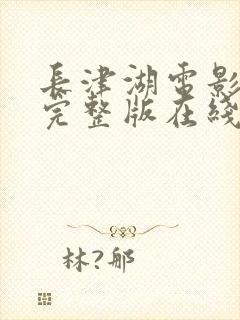 長津湖電影
完整版在綫
林?郍